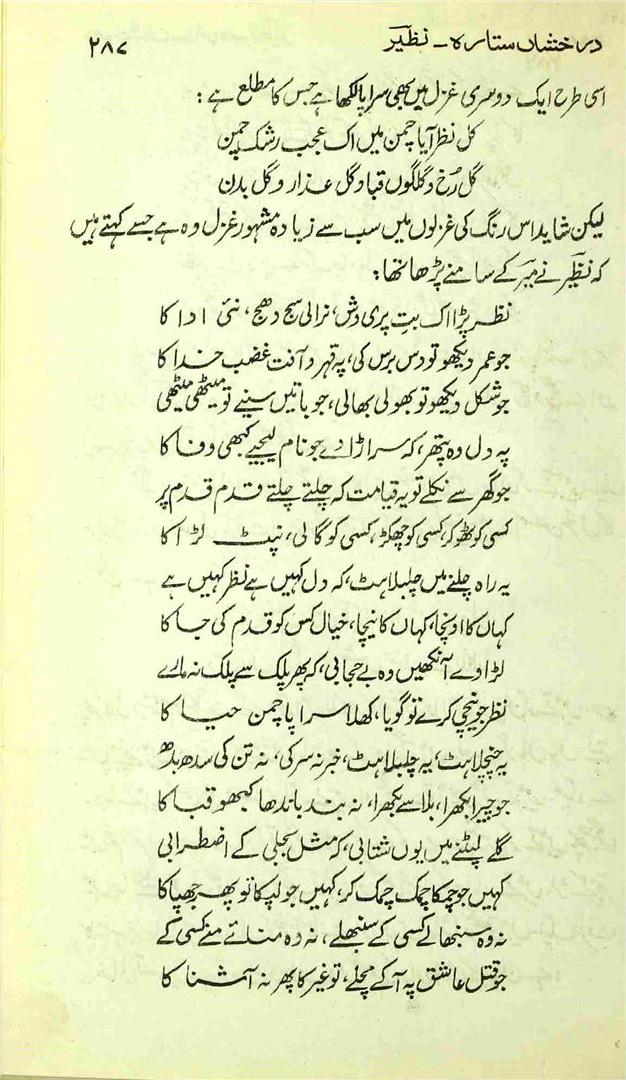 درخشاں ستارہ ــ نظیرؔ ۲۸۷
اسی طرح ایک دوسری غزل میں بھی سراپا لکھا ہے جس کا مطلع ہے :
کل نظر آیا چمن میں اک عجب رشک چمن
گل رُخ و گلگوں قبا و گل عذار و گل بدن
لیکن شاید اس رنگ کی غزلوں میں سب سے زیادہ مشہور غزل وہ ہے جسے کہتے ہیں
کہ نظیرؔ نے میرؔ کے سامنے پڑھا تھا :
نظر پڑا اک بتِ پری وش، نرالی سج دھج، نئی ادا کا
جو عمر دیکھو تو دس برس کی، پہ قہر و آفت غضب خدا کا
جو شکل دیکھو تو بھولی بھالی، جو باتیں سنیے تو میٹھی میٹھی
پہ دل وہ پتھر، کہ سر اڑا دے جو نام لیجیے کبھی وفا کا
جو گھر سے نکلے تو یہ قیامت کہ چلتے چلتے قدم قدم پر
کسی کو ٹھوکر، کسی کو جھکڑ، کسی کو گالی، نپٹ لڑاکا
یہ راہ چلنے میں چلبلاہٹ، کہ دل کہیں ہے نظر کہیں ہے
کہاں کا اونچا، کہاں کا نیچا، خیال کس کو قدم کی جا کا
لڑاوے آنکھیں وہ بے حجابی، کہ پھر پلک سے پلک نہ مارے
نظر جو نیچی کرے تو گویا، کھلا سراپا چمن حیا کا
یہ چنچلاہٹ، یہ چلبلاہٹ، خبر نہ سر کی، نہ تن کی سدھ بدھ
جو چیرا بکھرا، بلا سے بکھرا، نہ بند باندھا کبھو قبا کا
گلے لپٹنے میں یوں شتابی، کہ مثل بجلی کے اضطرابی
کہیں جو چمکا چمک چمک کر، کہیں جو لپکا تو پھر جھپاکا
نہ وہ سنبھالے کسی کے سنبھلے، نہ وہ منائے منے کسی کے
جو قتل عاشق پہ آ کے مچلے، تو غیر کا پھر نہ آشنا کا